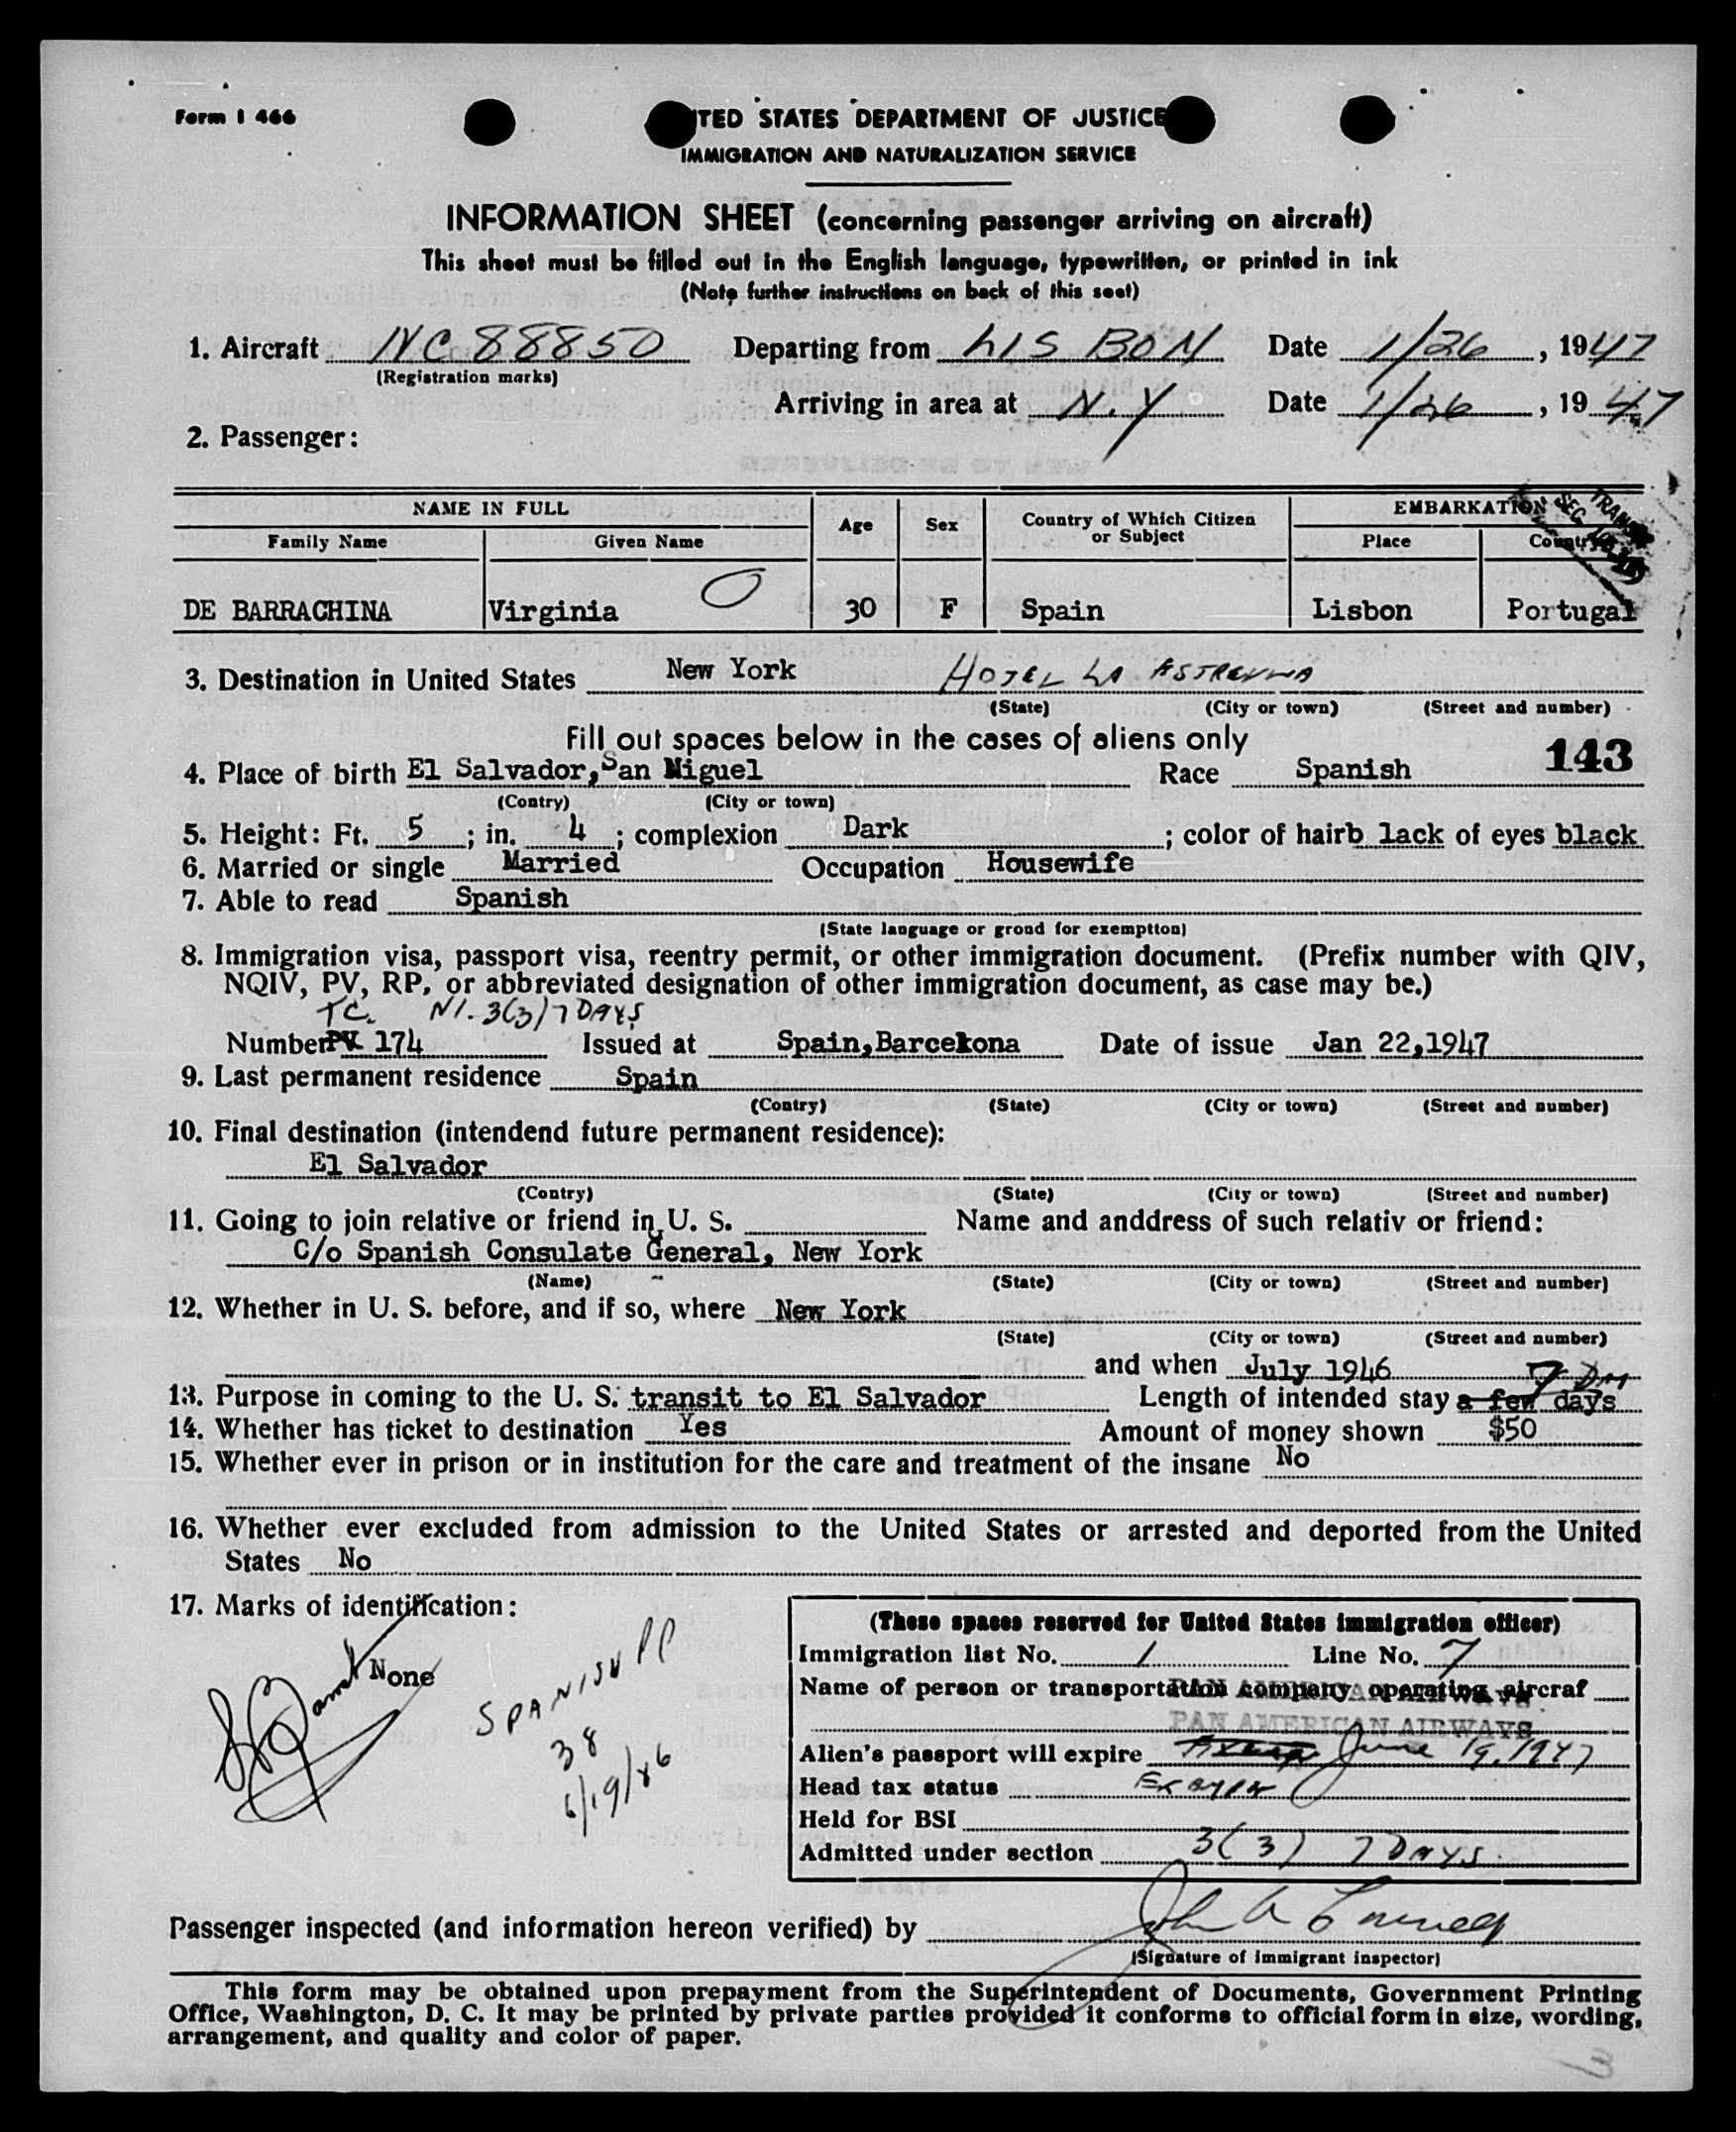 Form I 466
TED STATES DEPARTMENT OF JUSTICE
IMMIGRATION AND NATURALIZATION SERVICE
INFORMATION SHEET (concerning passenger arriving on aircraft)
This sheet must be filled out in the English language, typewritten, or printed in ink
(Note further instructions on back of this seet)
1. Aircraft NC 88850 Departing from LISBON Date 1/26, 1947
(Registration marks)
Arriving in area at N.Y Date 1/26, 1947
2. Passenger:
NAME IN FULL Age Sex Country of Which Citizen or Subject EMBARKATION
Family Name Given Name Place Country
TRANSIT SEC.
DE BARRACHINA Virginia 30 F Spain Lisbon Portugal
3. Destination in United States New York HOTEL LA
(State) (City or town) (Street and number)
Fill out spaces below in the cases of aliens only
143
4. Place of birth El Salvador, San Miguel Race Spanish
(Contry) (City or town)
5. Height: Ft. 5; in. 4; complexion Dark; color of hair b lack of eyes black
6. Married or single Married Occupation Housewife
7. Able to read Spanish
(State language or grond for exemptton)
8. Immigration visa, passport visa, reentry permit, or other immigration document. (Prefix number with QIV,
NQIV, PV, RP, or abbreviated designation of other immigration document, as case may be.)
TC. N1. 3(3) 7 DAYS
Number PV 174 Issued at Spain, Barcelona Date of issue Jan 22,1947
9. Last permanent residence Spain
(Contry) (State) (City or town) (Street and number)
10. Final destination (intendend future permanent residence):
El Salvador
(Contry) (State) (City or town) (Street and number)
11. Going to join relative or friend in U. S. Name and anddress of such relativ or friend:
C/o Spanish Consulate General, New York
(Name) (State) (City or town) (Street and number)
12. Whether in U. S. before, and if so, where New York
(State) (City or town) (Street and number)
and when July 1946
7 Dys
13. Purpose in coming to the U. S. transit to El Salvador Length of intended stay a few days
14. Whether has ticket to destination Yes Amount of money shown $50
15. Whether ever in prison or in institution for the care and treatment of the insane No
16. Whether ever excluded from admission to the United States or arrested and deported from the United
States No
17. Marks of identification:
None
SPANISH PP
38
6/19/46
(These spaces reserved for United States immigration officer)
Immigration list No. 1 Line No. 7
Name of person or transportation company operating aircraf
PAN AMERICAN AIRWAYS
PAN AMERICAN AIRWAYS
Alien's passport will expire June 19, 1947
Head tax status Exempt
Held for BSI
Admitted under section 3(3) 7 DAYS
Passenger inspected (and information hereon verified) by John A
(Signature of immigrant inspector)
This form may be obtained upon prepayment from the Superintendent of Documents, Government Printing
Office, Washington, D. C. It may be printed by private parties provided it conforms to official form in size, wording,
arrangement, and quality and color of paper.